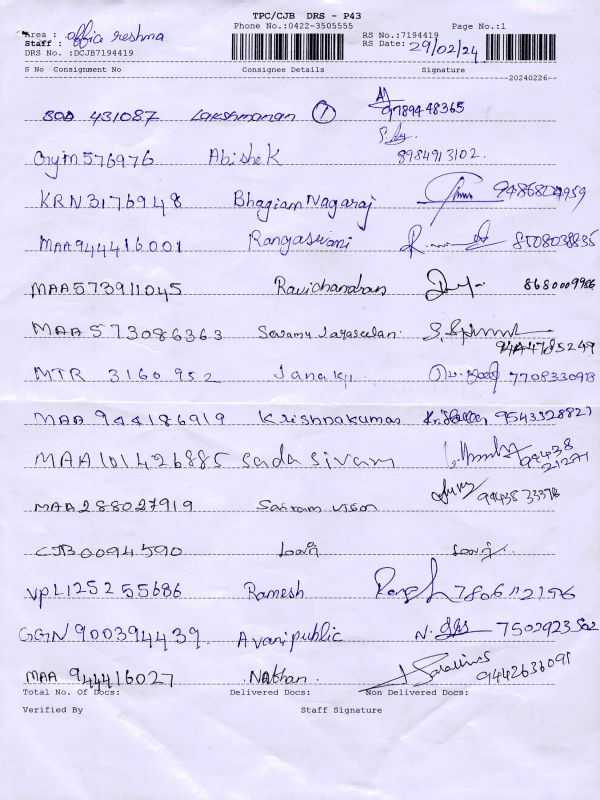 TPC/CJB DRS - P43
Phone No.:0422-3505555
Page No.:1
Area : offia reshma
Staff :
DRS No. :DCJB7194419
RS No.:7194419
RS Date: 29/02/24
S No Consignment No Consignee Details Signature
20240226--
431087 Lakshmanan 1 9789448365
576976 Abishek 8984913102.
KRN3176948 Bhagiam Nagaraj
MAA944416001 Rangaswami 8508038835
MAA573911045 Ravichandran 8680009986
MAA573086363 Swamy Jayaseelan. 9444785249
MTR 3160952 Janaki 7708330913
MAA 944186919 Krishnakumar 9543328827
MAA101426885 Sada Sivam 99438 21271
MAA288027919 Sairam
CJB0094590
VPL125255686 Ramesh
GGN900394439. Avani public N. 7502923502
MAA 944416027 Nathan 9442636091
Total No. Of Docs: Delivered Docs: Non Delivered Docs:
Verified By Staff Signature